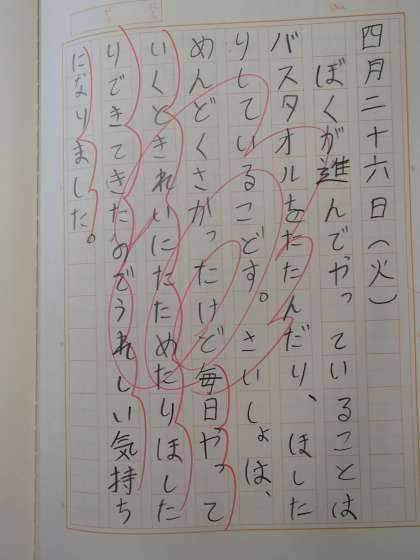 四月二十六日(火)
ぼくが進んでやっていることは
バスタオルをたたんだり、ほした
りしていることです。さいしょは、
めんどくさがったけど毎日やって
いくときれいにたためたりほした
りできてきたのでうれしい気持ち
になりました。